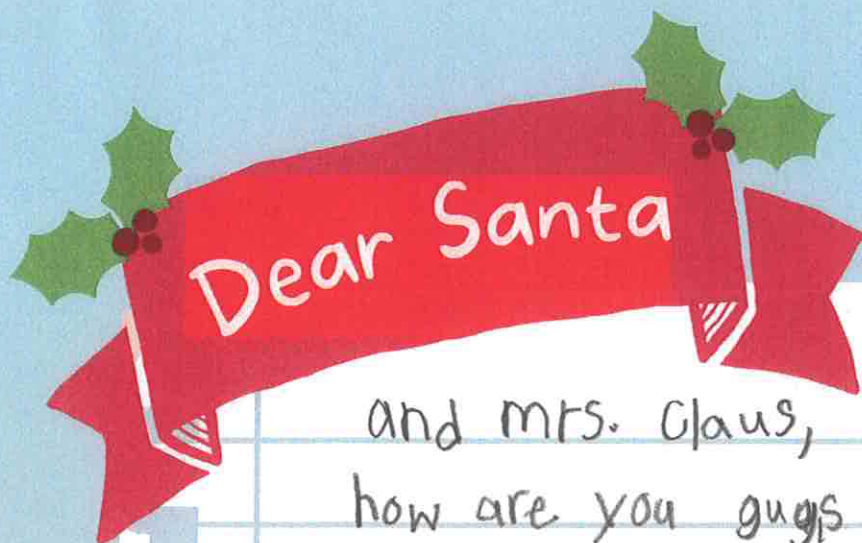 Dear Santa
and mrs. Claus,
how are you gugs